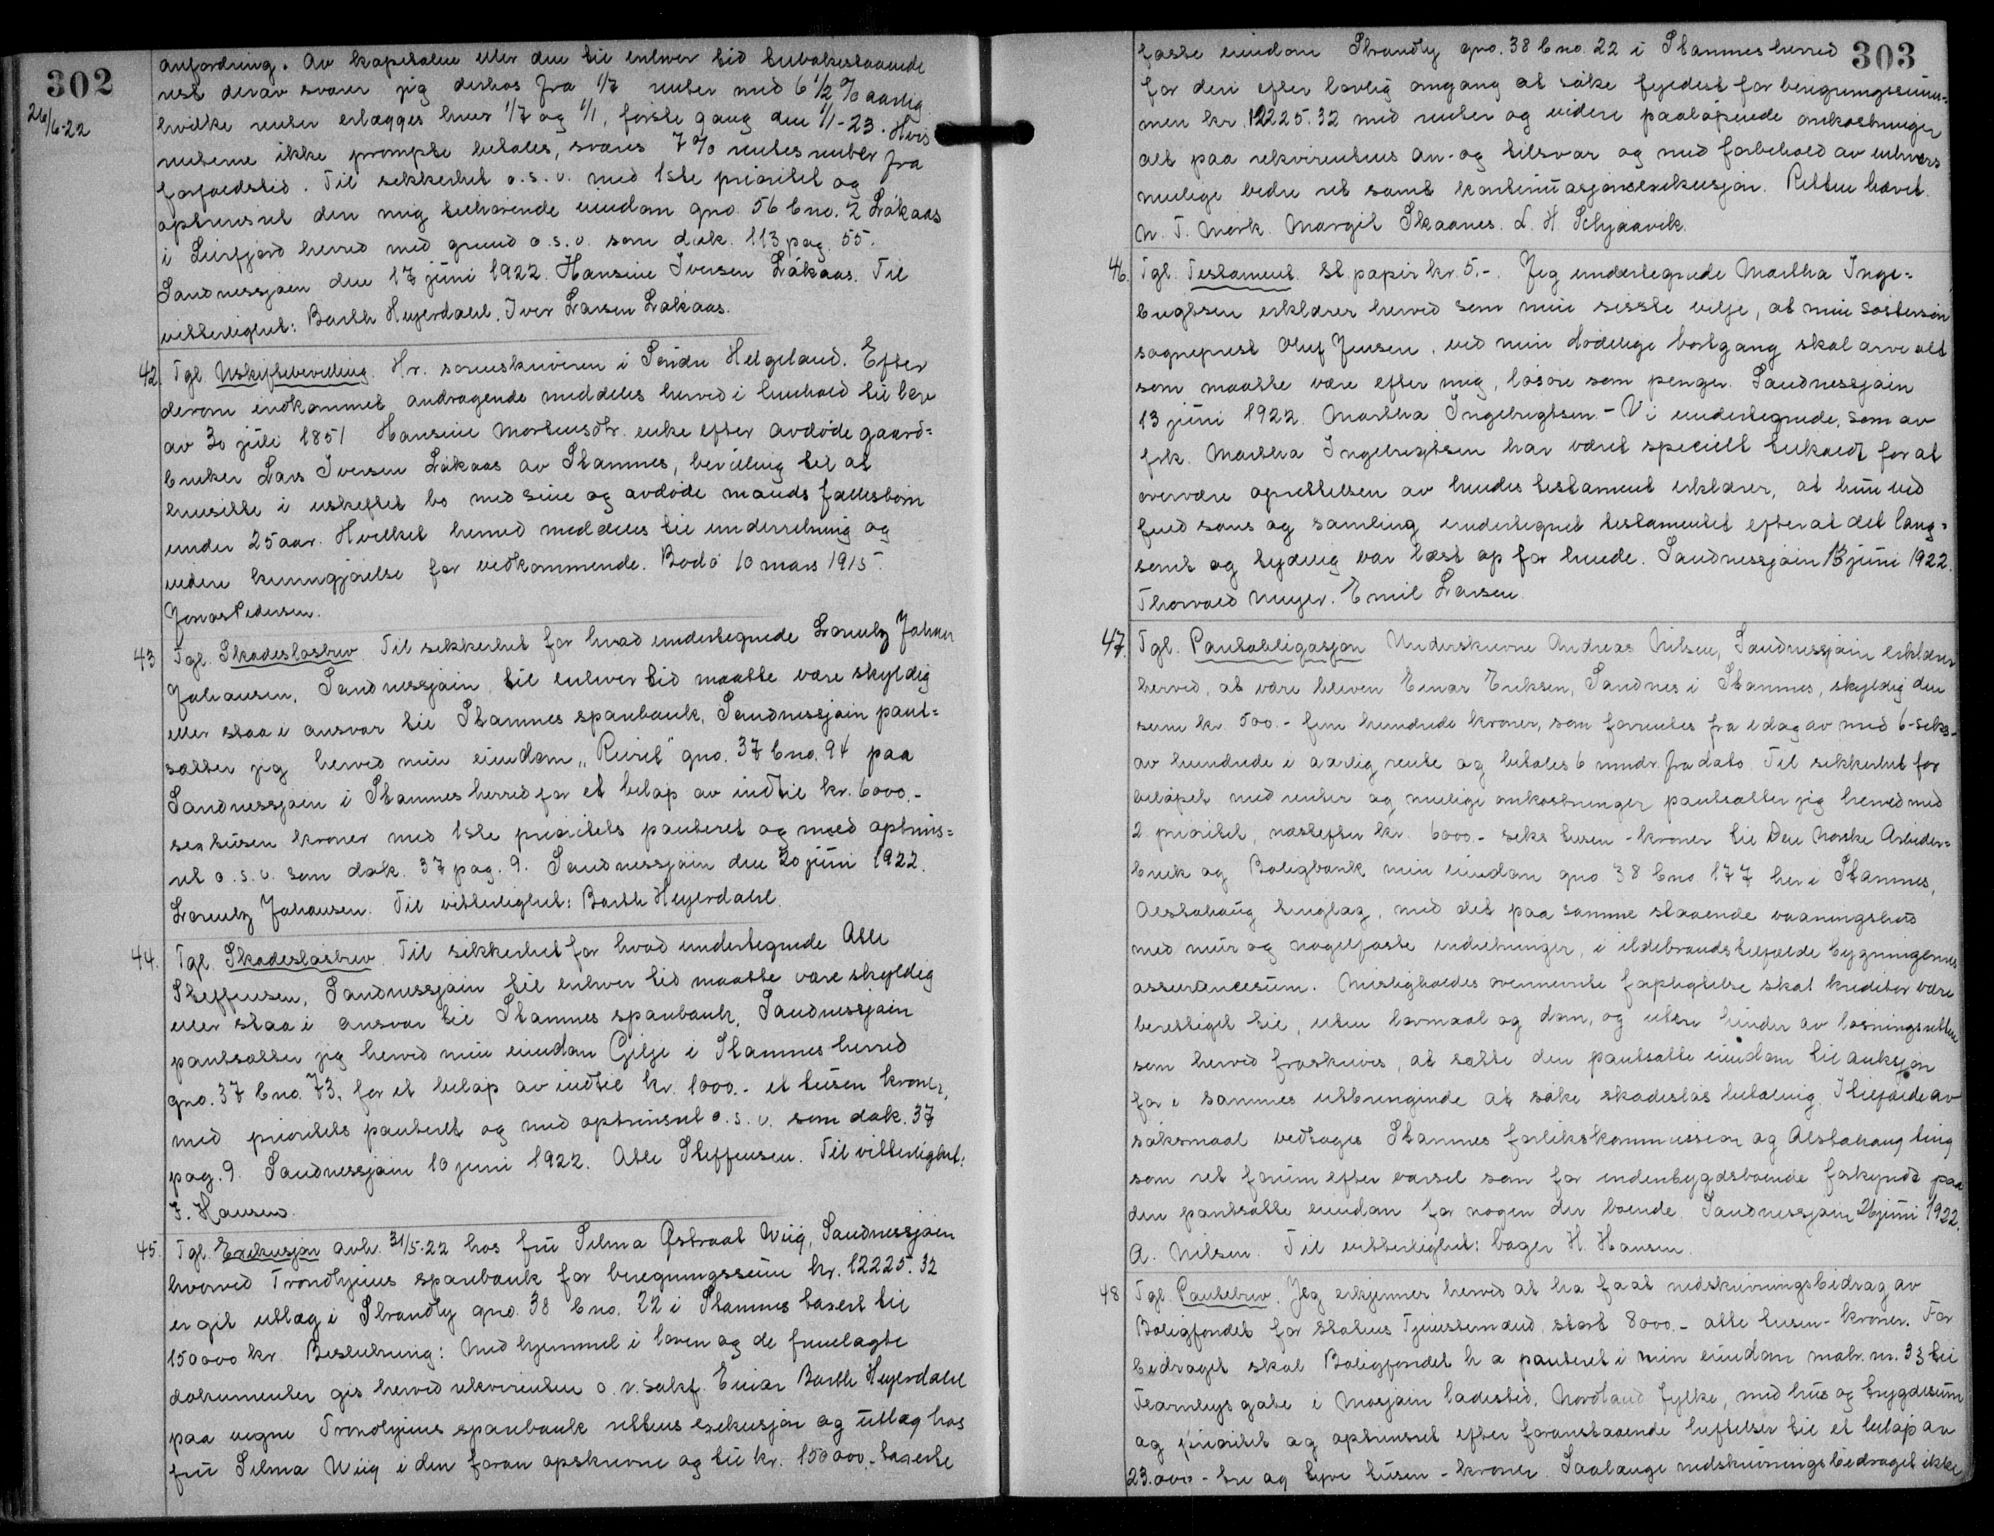 302
26/6-22
anfordring. Av kapitalen eller den til enhver tid tilbakestaaende
rest derav svarer jeg derhos fra 1/7 renter med 6 1/2 % aarlig
hvilke renter erlægges hver 1/7 og 1/1, første gang den 1/1-23. Hvis
renterne ikke prompte betales, svares 7 % rentesrenter fra
forfaldstid. Til sikkerhet o.s.v. med 1ste prioritet og
optrinsret den mig tilhørende eiendom gno. 56 bno. 2 Låkaas
i Leirfjord herred med grund o.s.v. som dok. 113 pag. 55.
Sandnessjøen den 17 juni 1922. Hansine Iversen Låkaas. Til
vitterlighet: Barth Heyerdahl. Iver Larsen Låkaas.
42. Tgl. Uskiftebevilling. Hr. sorenskriveren i Søndre Helgeland. Efter
derom indkommet andragende meddeles herved i henhold til lov
av 30 juli 1851 Hansine Mortensdtr. enke efter avdøde gaard=
bruker Lars Iversen Låkaas av Stamnes, bevilling til at
hensitte i uskiftet bo med sine og avdøde mands fællesbørn
under 25 aar. Hvilket herved meddeles til underretning og
videre kundgjørelse for vedkommende. Bodø 10 mars 1915.
Jonas Pedersen.
43 Tgl. Skadesløsbrev. Til sikkerhet for hvad undertegnede Lorentz Johan
Johansen, Sandnessjøen til enhver tid maatte være skyldig
eller staa i ansvar til Stamnes sparebank, Sandnessjøen pant=
sætter jeg herved min eiendom "Reiret" gno. 37 bno. 94 paa
Sandnessjøen i Stamnes herred for et beløp av indtil kr. 6000.-
sex tusen kroner med 1ste prioritets panteret og med optrins=
ret o.s.v. som dok. 37 pag. 9. Sandnessjøen den 20 juni 1922.
Lorentz Johansen. Til vitterlighet: Barth Heyerdahl.
44. Tgl. Skadesløsbrev. Til sikkerhet for hvad undertegnede Atle
Steffensen, Sandnessjøen til enhver tid maatte være skyldig
eller staa i ansvar til Stamnes sparebank, Sandnessjøen
pantsætter jeg herved min eiendom Gilje i Stamnes herred
gno. 37 bno. 73, for et beløp av indtil kr. 1000.- et tusen kroner,
med prioritets panteret og med optrinsret o.s.v. som dok. 37
pag. 9. Sandnessjøen 10 juni 1922. Atle Steffensen. Til vitterlighet:
F. Hansen.
45. Tgl. Exekusjon avh. 31/5-22 hos fru Selma Østraat Wiig, Sandnessjøen
hvorved Trondhjems sparebank for beregningssum kr. 12225.32
er git utlæg i Strandly gno. 38 bno. 22 i Stamnes taxert til
150000 kr. Beslutning: Med hjemmel i loven og de fremlagte
dokumenter gis herved rekvirenten o.r.sakf. Einar Barth Heyerdahl
paa vegne Trondhjems sparebank rettens exekusjon og utlæg hos
fru Selma Wiig i den foran opskrevne og til kr. 150000.- taxerte
303
faste eiendom Strandly gno. 38 bno. 22 i Stamnes herred
for deri efter lovlig omgang at søke fyldest for beregningssum=
men kr. 12225.32 med renter og videre paaløpende omkostninger
alt paa rekvirentens an- og tilsvar og med forbehold av enhvers
mulige bedre ret samt kontinuasjonsexekusjon. Retten hævet.
N. T. Mørk. Margit Skaanes. L. H.
46. Tgl. Testament. St. papir kr. 5.- Jeg undertegnede Martha Inge=
brigtsen erklærer herved som min sisste vilje, at min søstersøn
sogneprest Oluf Jensen, ved min dødelige bortgang skal arve alt
som maatte være efter mig, løsøre som penger. Sandnessjøen
13 juni 1922. Martha Ingebrigtsen - Vi undertegnede, som av
frk. Martha Ingebrigtsen har været specielt tilkaldt for at
overvære oprettelsen av hendes testament erklærer, at hun ved
fuld sans og samling undertegnet testamentet efterat det lang=
somt og tydelig var læst op for hende. Sandnessjøen 13 juni 1922.
Thorvald Meyer. Emil Larsen.
47. Tgl. Panteobligasjon Underskrevne Andreas Nilsen, Sandnessjøen erklærer
herved, at være bleven Einar Eriksen, Sandnes i Stamnes, skyldig den
sum kr. 500.- fem hundrede kroner, som forrentes fra idag av med 6-seks-
av hundrede i aarlig rente og betales 6 mndr. fra dato. Til sikkerhet for
beløpet med renter og mulige omkostninger pantsætter jeg herved med
2 prioritet, næstefter kr. 6000.- seks tusen - kroner til Den Norske Arbeider=
bruk og Boligbank min eiendom gno 38 bno 177 her i Stamnes,
Alstahaug tinglag, med det paa samme staaende vaaningshus
med mur og nagelfaste indretninger, i ildebrandstilfælde bygningernes
assurancesum. Misligholdes ovennevnte forpligtelse skal kreditor være
berettiget til, uten lovmaal og dom, og uten hinder av løsningsretten
som herved fraskrives, at sætte den pantsatte eiendom til auksjon
for i sammes utbringende at søke skadesløs betaling. I tilfælde av
søksmaal vedtages Stamnes forlikskommission og Alstahaug ting
som ret forum efter varsel som for indenbygdsboende forkyndt paa
den pantsatte eiendom for nogen der boende. Sandnessjøen 26 juni 1922.
A. Nilsen. Til vitterlighet: bager H. Hansen.
48 Tgl. Pantebrev. Jeg erkjenner herved at ha faat nedskrivningsbidrag av
Boligfondet for Statens Tjenestemænd stort 8000.- otte tusen- kroner. For
bidraget skal Boligfondet ha panteret i min eiendom matr. nr. 33 til
Fearnleys gate i Mosjøen ladested, Nordland fylke, med hus og brygdesum
og prioritet og optrinsret efter foranstaaende heftelser til et beløp av
23.000 - tre og tyve tusen - kroner. Saalænge nedskrivningsbidraget ikke